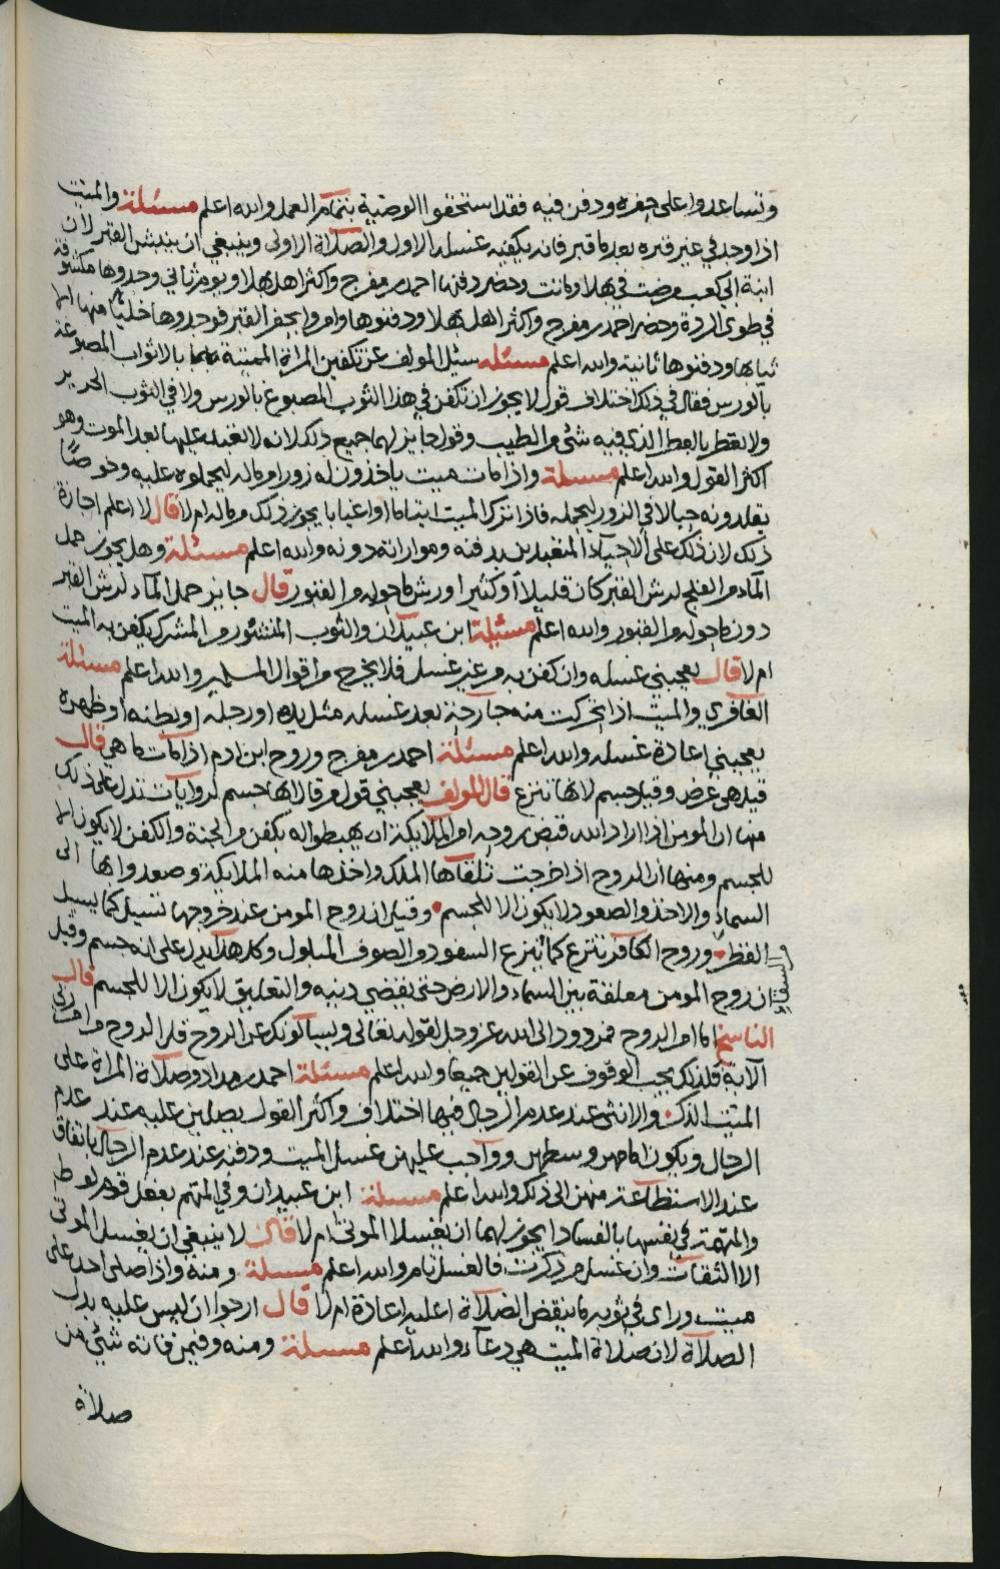 وتساعدوا على حفره ودفن فيه فقد استحقوا الوصية بتمام العمل والله اعلم مسئلة والميت
اذا وجد في غير قبره بعدما قبر فانه يكفيه غسله الاول والصلاة الاولى وينبغي ان ينبش القبر لان
ابنة ابي كعب مرضت في بهلا وماتت وحضر دفنها احمد بن مفرج واكثر اهل بهلا ويوم ثاني وجدوها مكشوفة
في طوي الردة وحضر احمد بن مفرج واكثر اهل بهلا ودفنوها وامروا بحفر القبر فوجدوها خليا منها الا
ثيابها ودفنوها ثانية والله اعلم مسئله سئل المولف عن تكفين المراة الميتة بالاثواب المصبوغة
بالورس فقال في ذلك اختلاف قول لا يجوز ان تكفن في هذا الثوب المصبوغ بالورس ولا في الثوب الحرير
ولا بقطن بالعطر الذي فيه شئ من الطيب وقول جايز لهما جميع ذلك لانه لا تعبد عليها بعد الموت وهو
اكثر القول والله اعلم مسئلة واذا مات ميت ياخذون له زورا من ماله ليحملوه عليه وخوصا
يقلدونه حبالا في الزور ليحمله فاذا ترك الميت ايتاما او اغيابا يجوز ذلك من ماله ام لا قال لا اعلم اجازة
ذلك لان ذلك على الاحياء المتعبدين بدفنه ومواراته دونه والله اعلم مسئلة وهل يجوز حمل
الماء من الفلج لرش القبر كان قليلا او كثيرا ورش ما حوله من القبور قال جايز حمل الماء لرش القبر
دون ما حوله من القبور والله اعلم مسئلة ابن عبيدان والثوب المنشور من المشرك يكفن به الميت
ام لا قال يعجبني غسله وان كفن به من غير غسل فلا يخرج من اقوال المسلمين والله اعلم مسئلة
الغافري والميت اذا تحركت منه جارحة بعد غسله مثل يده او رجله او بطنه او ظهره
يعجبني اعادة غسله والله اعلم مسئلة احمد بن مفرج وروح ابن ادم اذا مات ما هي قال
قيل هي عرض وقيل جسم لانها تنزع قال المولف يعجبني قول من قال انها جسم لروايات تدل على ذلك
منها ان المومن اذا اراد الله قبض روحه امر الملايكة ان يهبطوا له بكفن من الجنة والكفن لا يكون الا
للجسم ومنها ان الروح اذا خرجت تلقاها الملك واخذها منه الملايكة وصعدوا بها الى
السماء والاخذ والصعود لا يكون الا للجسم وقيل ان روح المومن عند خروجها تسيل كما يسيل
القطر وروح الكافر تنزع كما ينزع السفود من الصوف المبلول وكل هذا يدل على انه جسم وقيل
ان روح المومن معلقة بين السماء والارض حتى يقضي دينه والتعليق لا يكون الا للجسم قال
الناسخ اما امر الروح فمردود الى الله عز وجل لقوله تعالى ويسالونك عن الروح قل الروح من امر ربي
الاية فلذلك يجب الوقوف عن القولين جميعا والله اعلم مسئلة احمد بن مداد وصلاة المراة على
الميت الذكر والانثى عند عدم الرجال فيها اختلاف واكثر القول يصلين عليه عند عدم
الرجال ويكون امامهن وسطهن وواجب عليهن غسل الميت ودفنه عند عدم الرجال باتفاق
عند الاستطاعة منهن الى ذلك والله اعلم مسئلة ابن عبيدان وفي المتهم بفعل قوم لوط
والمتهمة في نفسها بالفساد ايجوز لهما ان يغسلا الموتى ام لا قال لا ينبغي ان يغسل الموتى
الا الثقات وان غسل من ذكرت فالغسل تام والله اعلم مسئلة ومنه واذا صلى احد على
ميت وراى في ثوبه ما ينقض الصلاة اعليه اعادة ام لا قال ارجوا ان ليس عليه بدل
الصلاة لان صلاة الميت هي دعاء والله اعلم مسئلة ومنه وفيمن فاته شئ من
صلاة